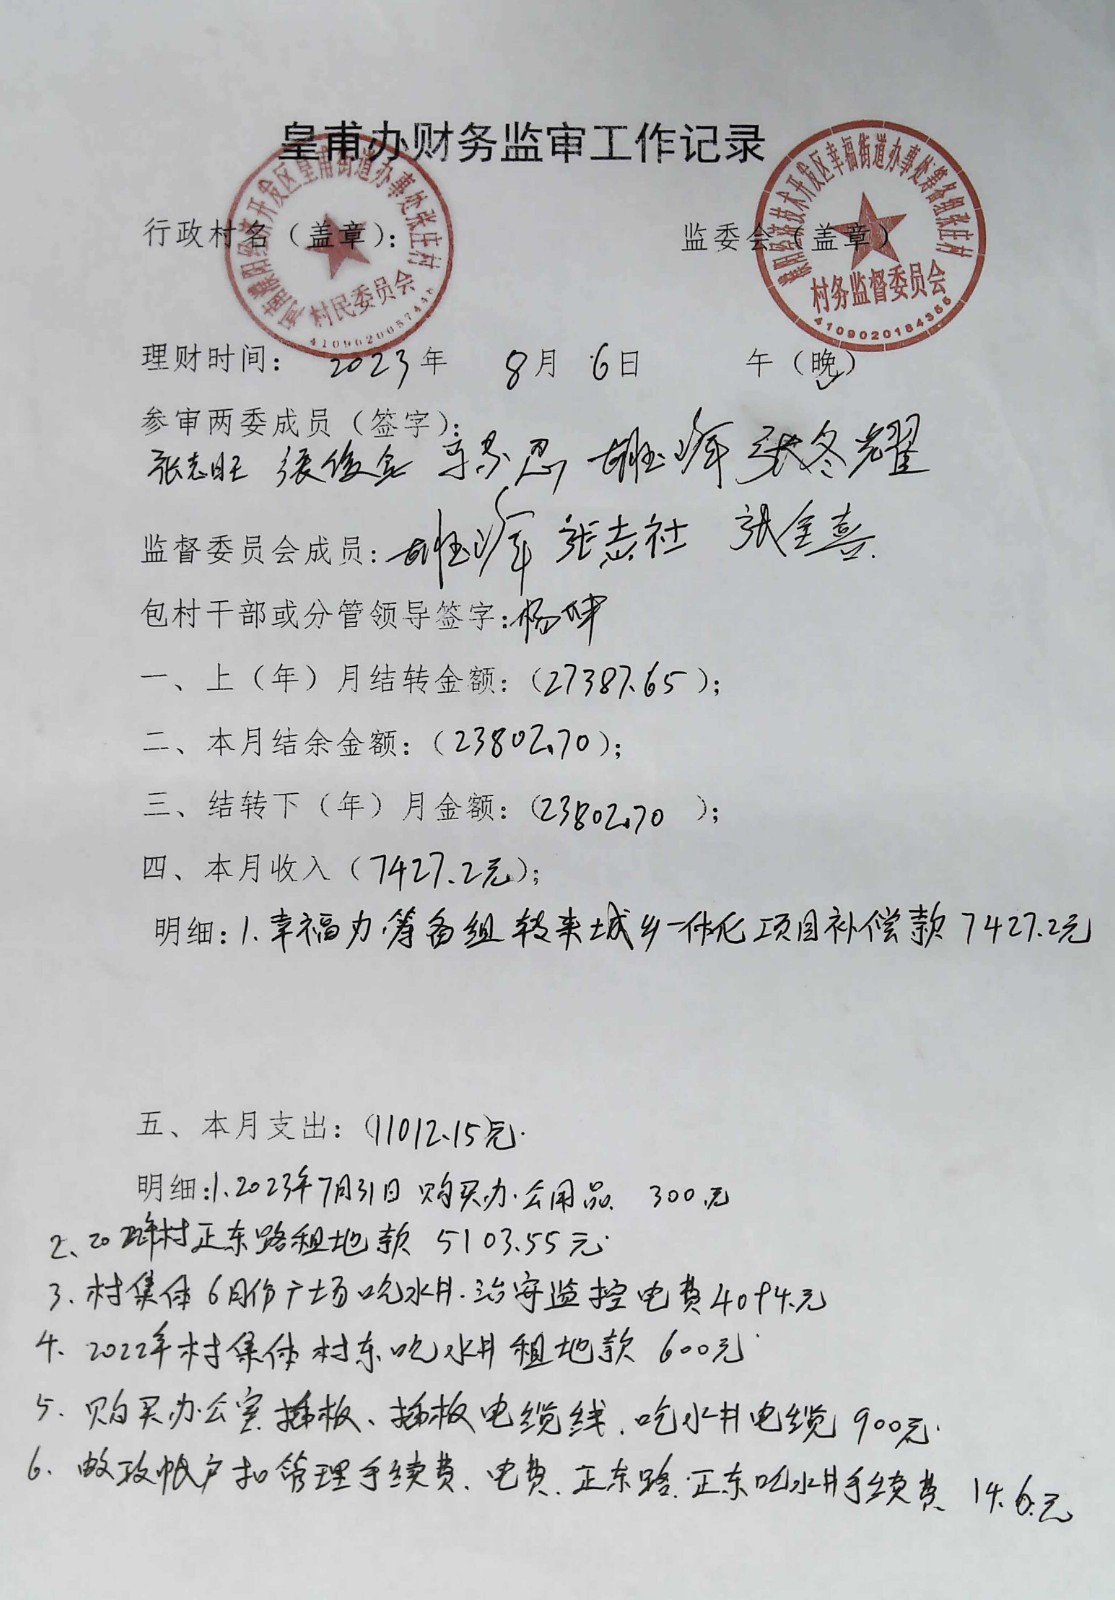 皇甫办财务监审工作记录
河南濮阳经济开发区皇甫街道办事处张庄村
村民委员会
濮阳经济技术开发区幸福街道办事处筹备组张庄村
村务监督委员会
4109020184355
行政村名（盖章）：
监委会（盖章）
理财时间： 2023年 8月 6日 午（晚）
参审两委成员（签字）：
张志旺 张俊金 张冬耀
监督委员会成员： 张志社 张金喜
包村干部或分管领导签字：杨坤
一、上（年）月结转金额：（27387.65）；
二、本月结余金额：（23802.70）；
三、结转下（年）月金额：（23802.70 ）；
四、本月收入（7427.2元）；
明细：1.幸福办筹备组转来城乡一体化项目补偿款 7427.2元
五、本月支出：（11012.15元.
明细：1.2023年7月31日 购买办公用品 300元
2、2022年村正东路租地款 5103.55元.
3.村集体6月份广场吃水井.治安监控电费4094元
4.2022年村集体村东吃水井租地款 600元
5.购买办公室插板、插板电缆线.吃水井电缆900元.
6.邮政帐户扣管理手续费、电费、正东路.正东吃水井手续费、14.6元